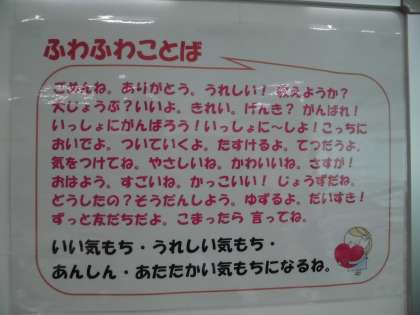 ふわふわことば
ごめんね。ありがとう。うれしい！ 教えようか？
大じょうぶ？いいよ。きれい。げんき？ がんばれ！
いっしょにがんばろう！いっしょに～しよ！こっちに
おいでよ。ついていくよ。たすけるよ。てつだうよ。
気をつけてね。やさしいね。かわいいね。さすが！
おはよう。すごいね。かっこいい！ じょうずだね。
どうしたの？そうだんしよう。ゆずるよ。だいすき！
ずっと友だちだよ。こまったら 言ってね。
いい気もち・うれしい気もち・
あんしん・あたたかい気もちになるね。